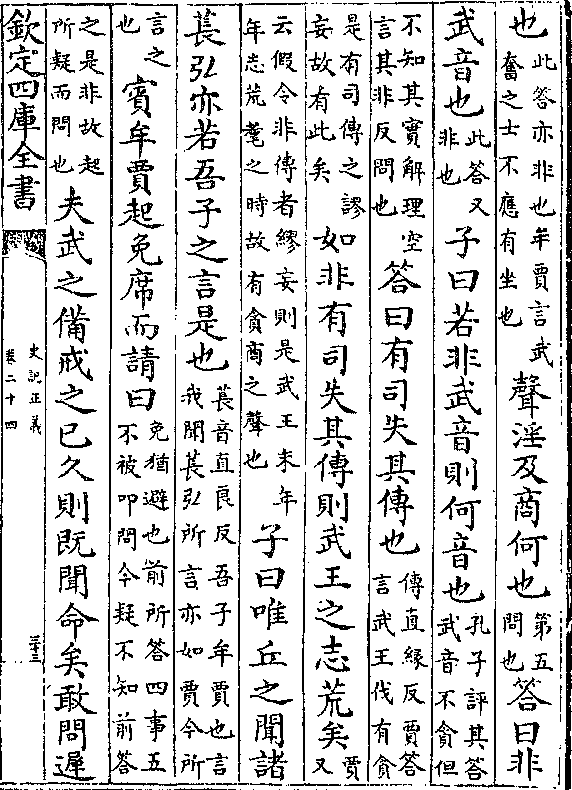 也此答亦非也牟賈言武奮之士不應有坐也聲淫及商何也第五問也答曰非
武音也此答又非也子曰若非武音則何音也孔子評其答武音不貪但
不知其實解理空言其非反問也答曰有司失其傳也傳直緣反賈答言武王伐有貪
是有司傳之謬妄故有此矣如非有司失其傳則武王之志荒矣賈又
云假令非傳者繆妄則是武王末年年志荒耄之時故有貪商之聲也子曰唯丘之聞諸
萇弘亦若吾子之言是也萇音直良反吾子牟賈也言我聞萇弘所言亦如賈今所
言之也賓牟賈起免席而請曰免猶避也前所答四事五不被叩問今疑不知前答
之是非故起所疑而問也夫武之備戒之已久則既聞命矣敢問遲
欽定四庫全書
史記正義
卷二十四
三十三